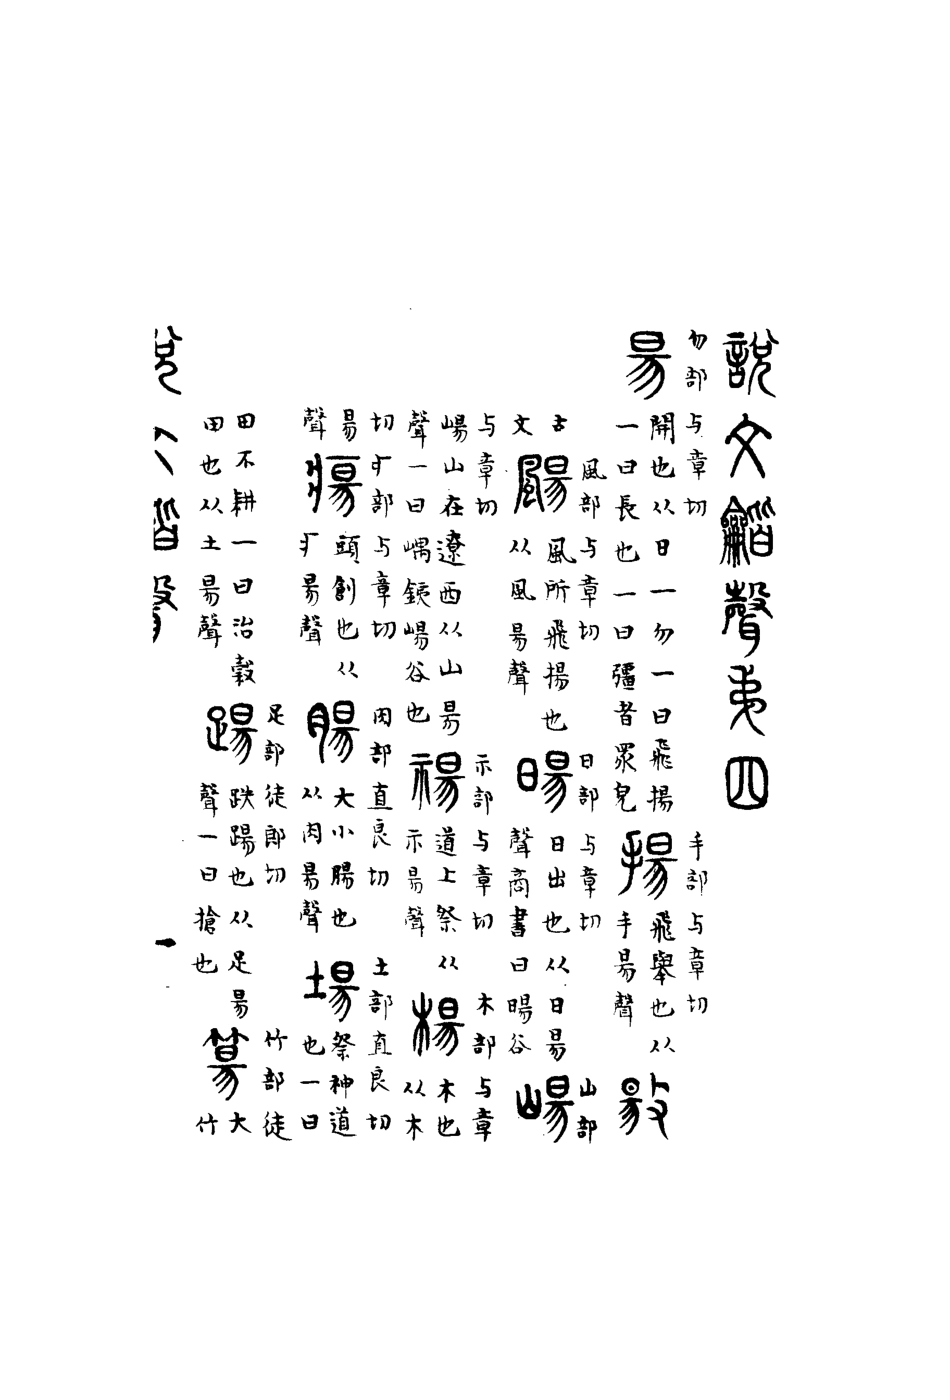 說文龤聲弟四
勿部与章切
昜
開也从日一勿一曰飛揚
一曰長也一曰彊者眾皃
手部与章切
揚
飛舉也从
手昜聲
敭
古
文
風部与章切
颺
風所飛揚也
从風昜聲
日部与章切
暘
日出也从日昜
聲商書曰暘谷
山部
崵
与章切
崵山在遼西从山昜
聲一曰嵎銕崵谷也
示部与章切
禓
道上祭从
示昜聲
木部与章
楊
木也
从木
切
昜
聲
疒部与章切
瘍
頭創也从
疒昜聲
肉部直良切
腸
大小腸也
从肉昜聲
土部直良切
場
祭神道
也一曰
田不耕一曰治穀
田也从土昜聲
足部徒郎切
踼
跌踼也从足昜
聲一曰搶也
竹部徒
䈑
大
竹
一